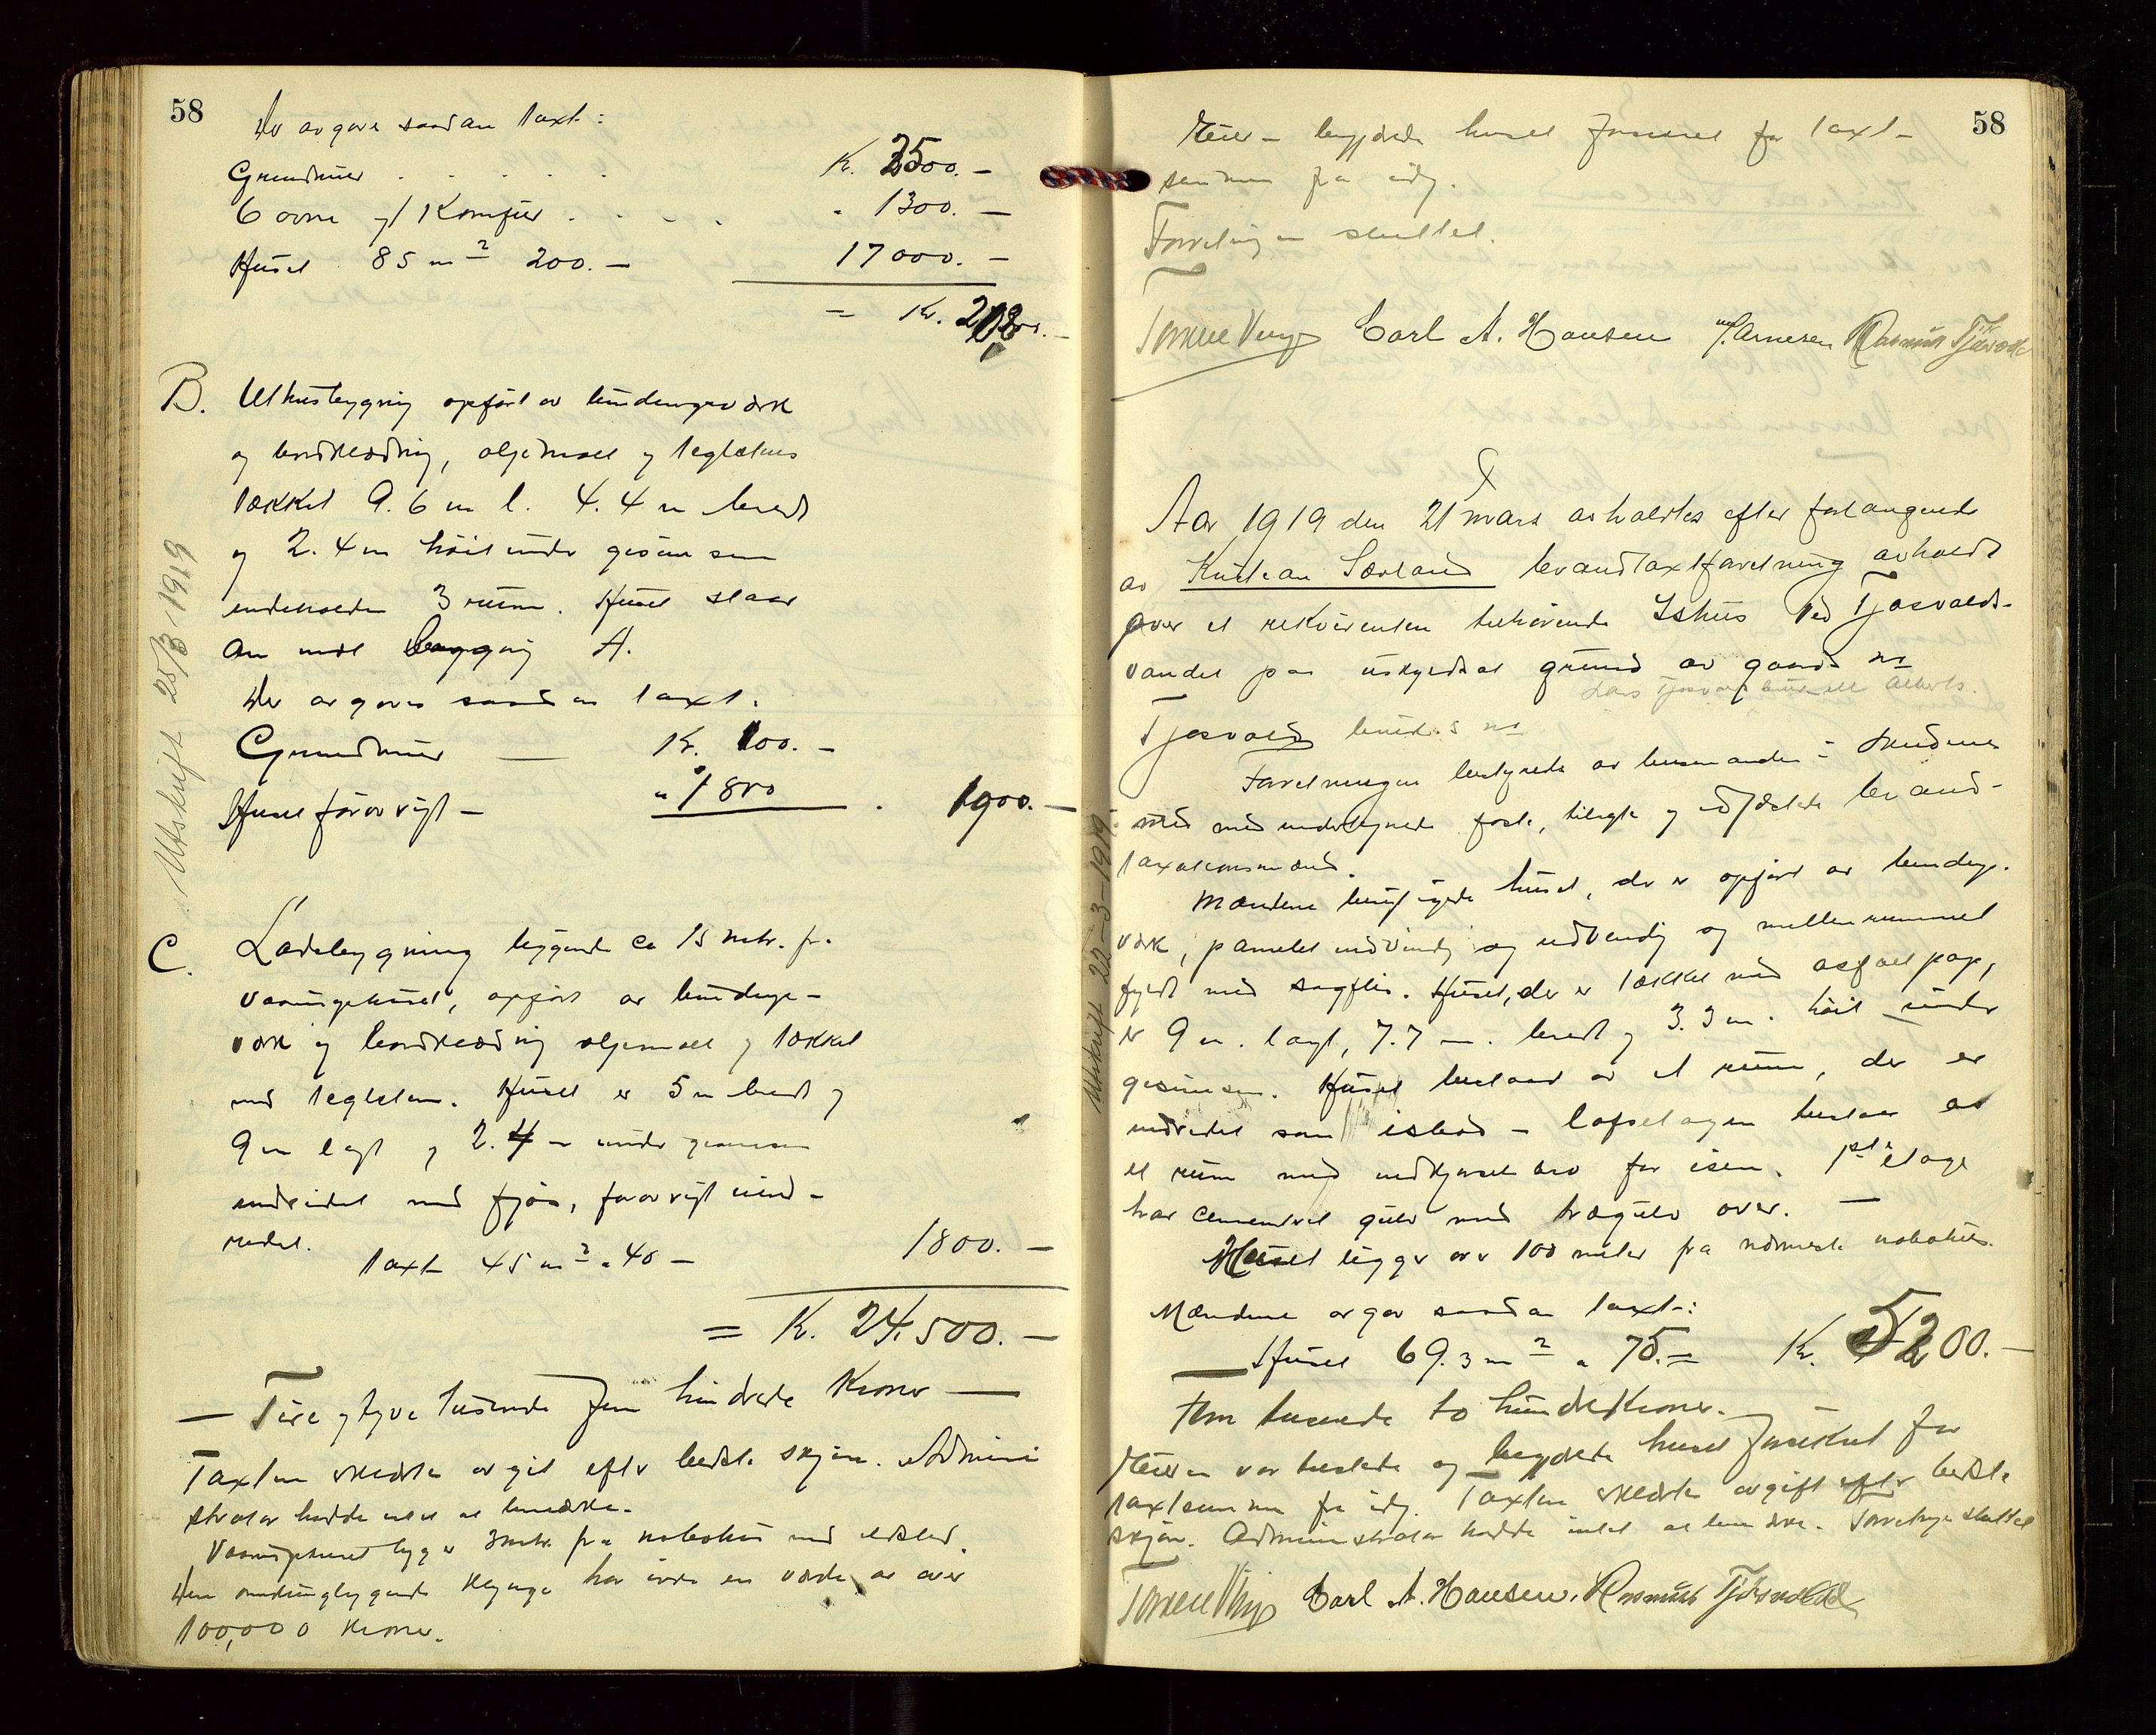 58
Der avgaves saadan taxt:
Grundmur . . . . . Kr. 2500.—
6 ovne og 1 Komfur . . . . " 1300.—
Huset 85 m2 200.— 17000.—
= Kr. 20800.—
B. Uthusbygning opført av bindingsværk
og bordklædning, oljemalt og teglstens
tækket 9.6 m l. 4.4 m bredt
og 2.4 m høit under gesims som
indeholder 3 rum. Huset staar
an mot bygning A.
Der avgaves saadan taxt:
Grundmur — Kr. 100.—
Huset forøvrigt — " 1800 . 1900.—
Utskrift 25/3 1919
C. Ladebygning liggende ca 15 mtr. fra
vaaningshuset, opført av bindings-
værk og bordklædning oljemalt og tækket
med teglsten. Huset er 5 m bredt og
9 m langt og 2.4 m under gesimsen
indredet med fjøs, forøvrigt uind-
redet.
Taxt 45 m2 a 40 — 1800.—
= Kr. 24,500.—
— Fire og tyve tusende fem hundrede Kroner —
Taxten erklærtes avgit efter bedste skjøn. Admini
strator hadde intet at bemærke.
Vaaningshuset ligger 3 mtr. fra nabohus med ildsted.
Den omkringliggende klynge har ikke en værdi av over
100,000 kroner.
58
Eier – begjærte huset forsikret for taxt-
summen fra idag.
Forretningen sluttet.
Carl A. Hansen M. Arnesen Rasmus Tjøsvoll
Aar 1919 den 21 mars avholdtes efter forlangende
av Kristian Sørland brandtaxtforretning avholdt
over et rekvirenten tilhørende Ishus ved Tjøsvolds-
vandet paa uskyldsat grund av gaards no
Tjøsvold bruks no
Forretningen bestyrtes av lensmanden i Skudenes
med med undertegnede faste, tiltagte og edfæstede brand-
taxationsmænd.
Mændene besigtigede huset, der er opført av bindings-
værk, panelet indvendig og utvendig og mellemrummet
fyldt med sagflis. Huset, der er tækket med asfaltpap,
er 9 m. langt, 7.7 m. bredt og 3.3 m. høit under
gesimsen. Huset bestaar av et rum, der er
indredet som isbod – loftsetagen bestaar av
et rum med indkjørselsbro for isen. 1ste etage
har cementert gulv med trægulv over. —
Huset ligger over 100 meter fra nærmeste nabohus.
Utskrift 22–3–1919
Mændene avgav saadan taxt:
Huset 69.3 m2 a 75.— Kr. 5200.—
Fem tusende to hundr Kroner.
Eieren var tilstede og begjærte huset forsikret for
taxtsummen fra idag. Taxten erklærtes avgit efter bedste
skjøn. Administrator hadde intet at bemærke. Forretningen sluttet
Carl A. Hansen. Rasmus Tjøsvold